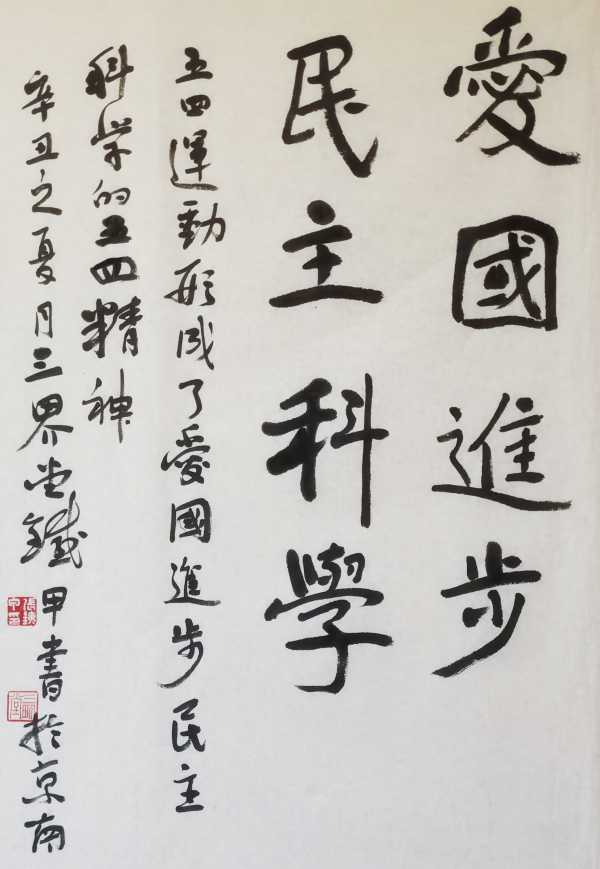 愛國進步
民主科學
五四運動形成了愛國進步民主
科学的五四精神
辛丑之夏月三界堂鐵甲書於京南